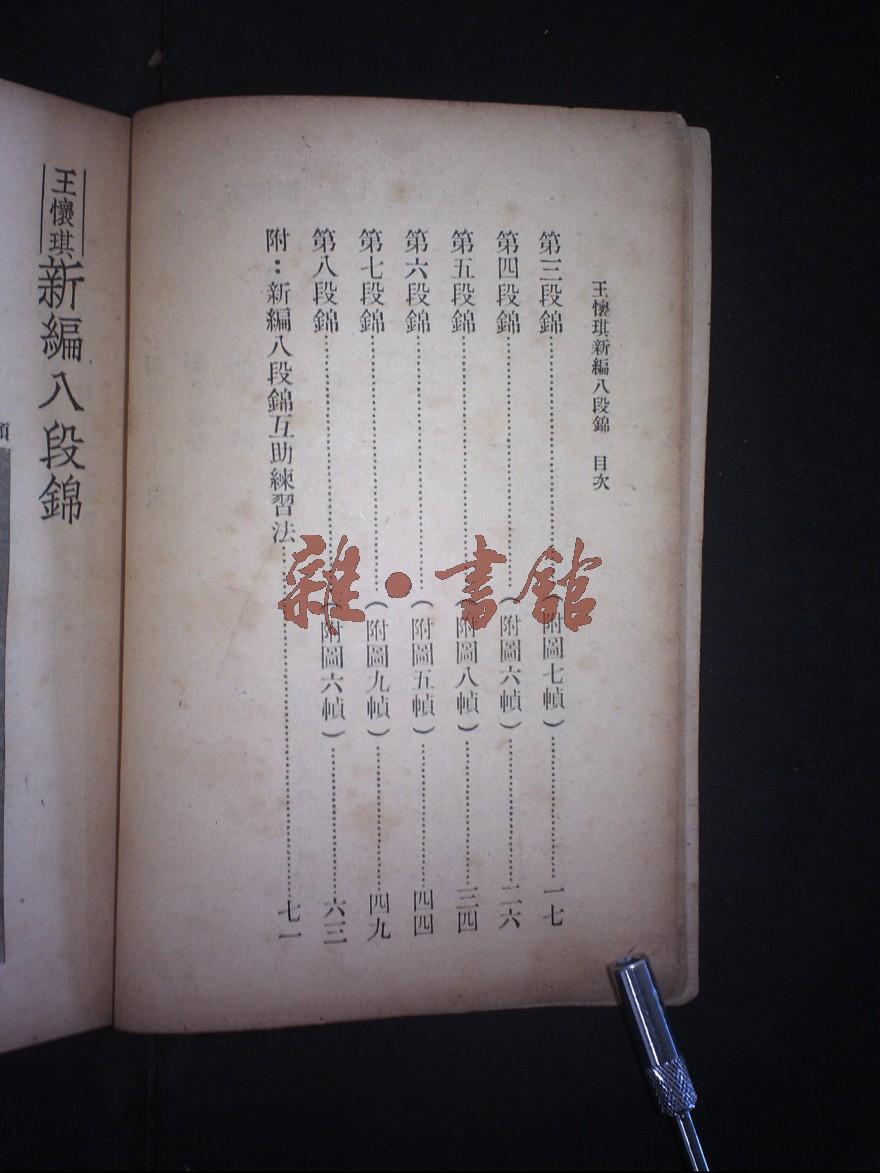 王懷琪新編八段錦 目次
第三段錦……(附圖七幀)……一七
第四段錦……(附圖六幀)……二六
第五段錦……(附圖八幀)……三四
第六段錦……(附圖五幀)……四四
第七段錦……(附圖九幀)……四九
第八段錦……(附圖六幀)……六三
附：新編八段錦互助練習法……七一
王懷琪新編八段錦
雜·書館